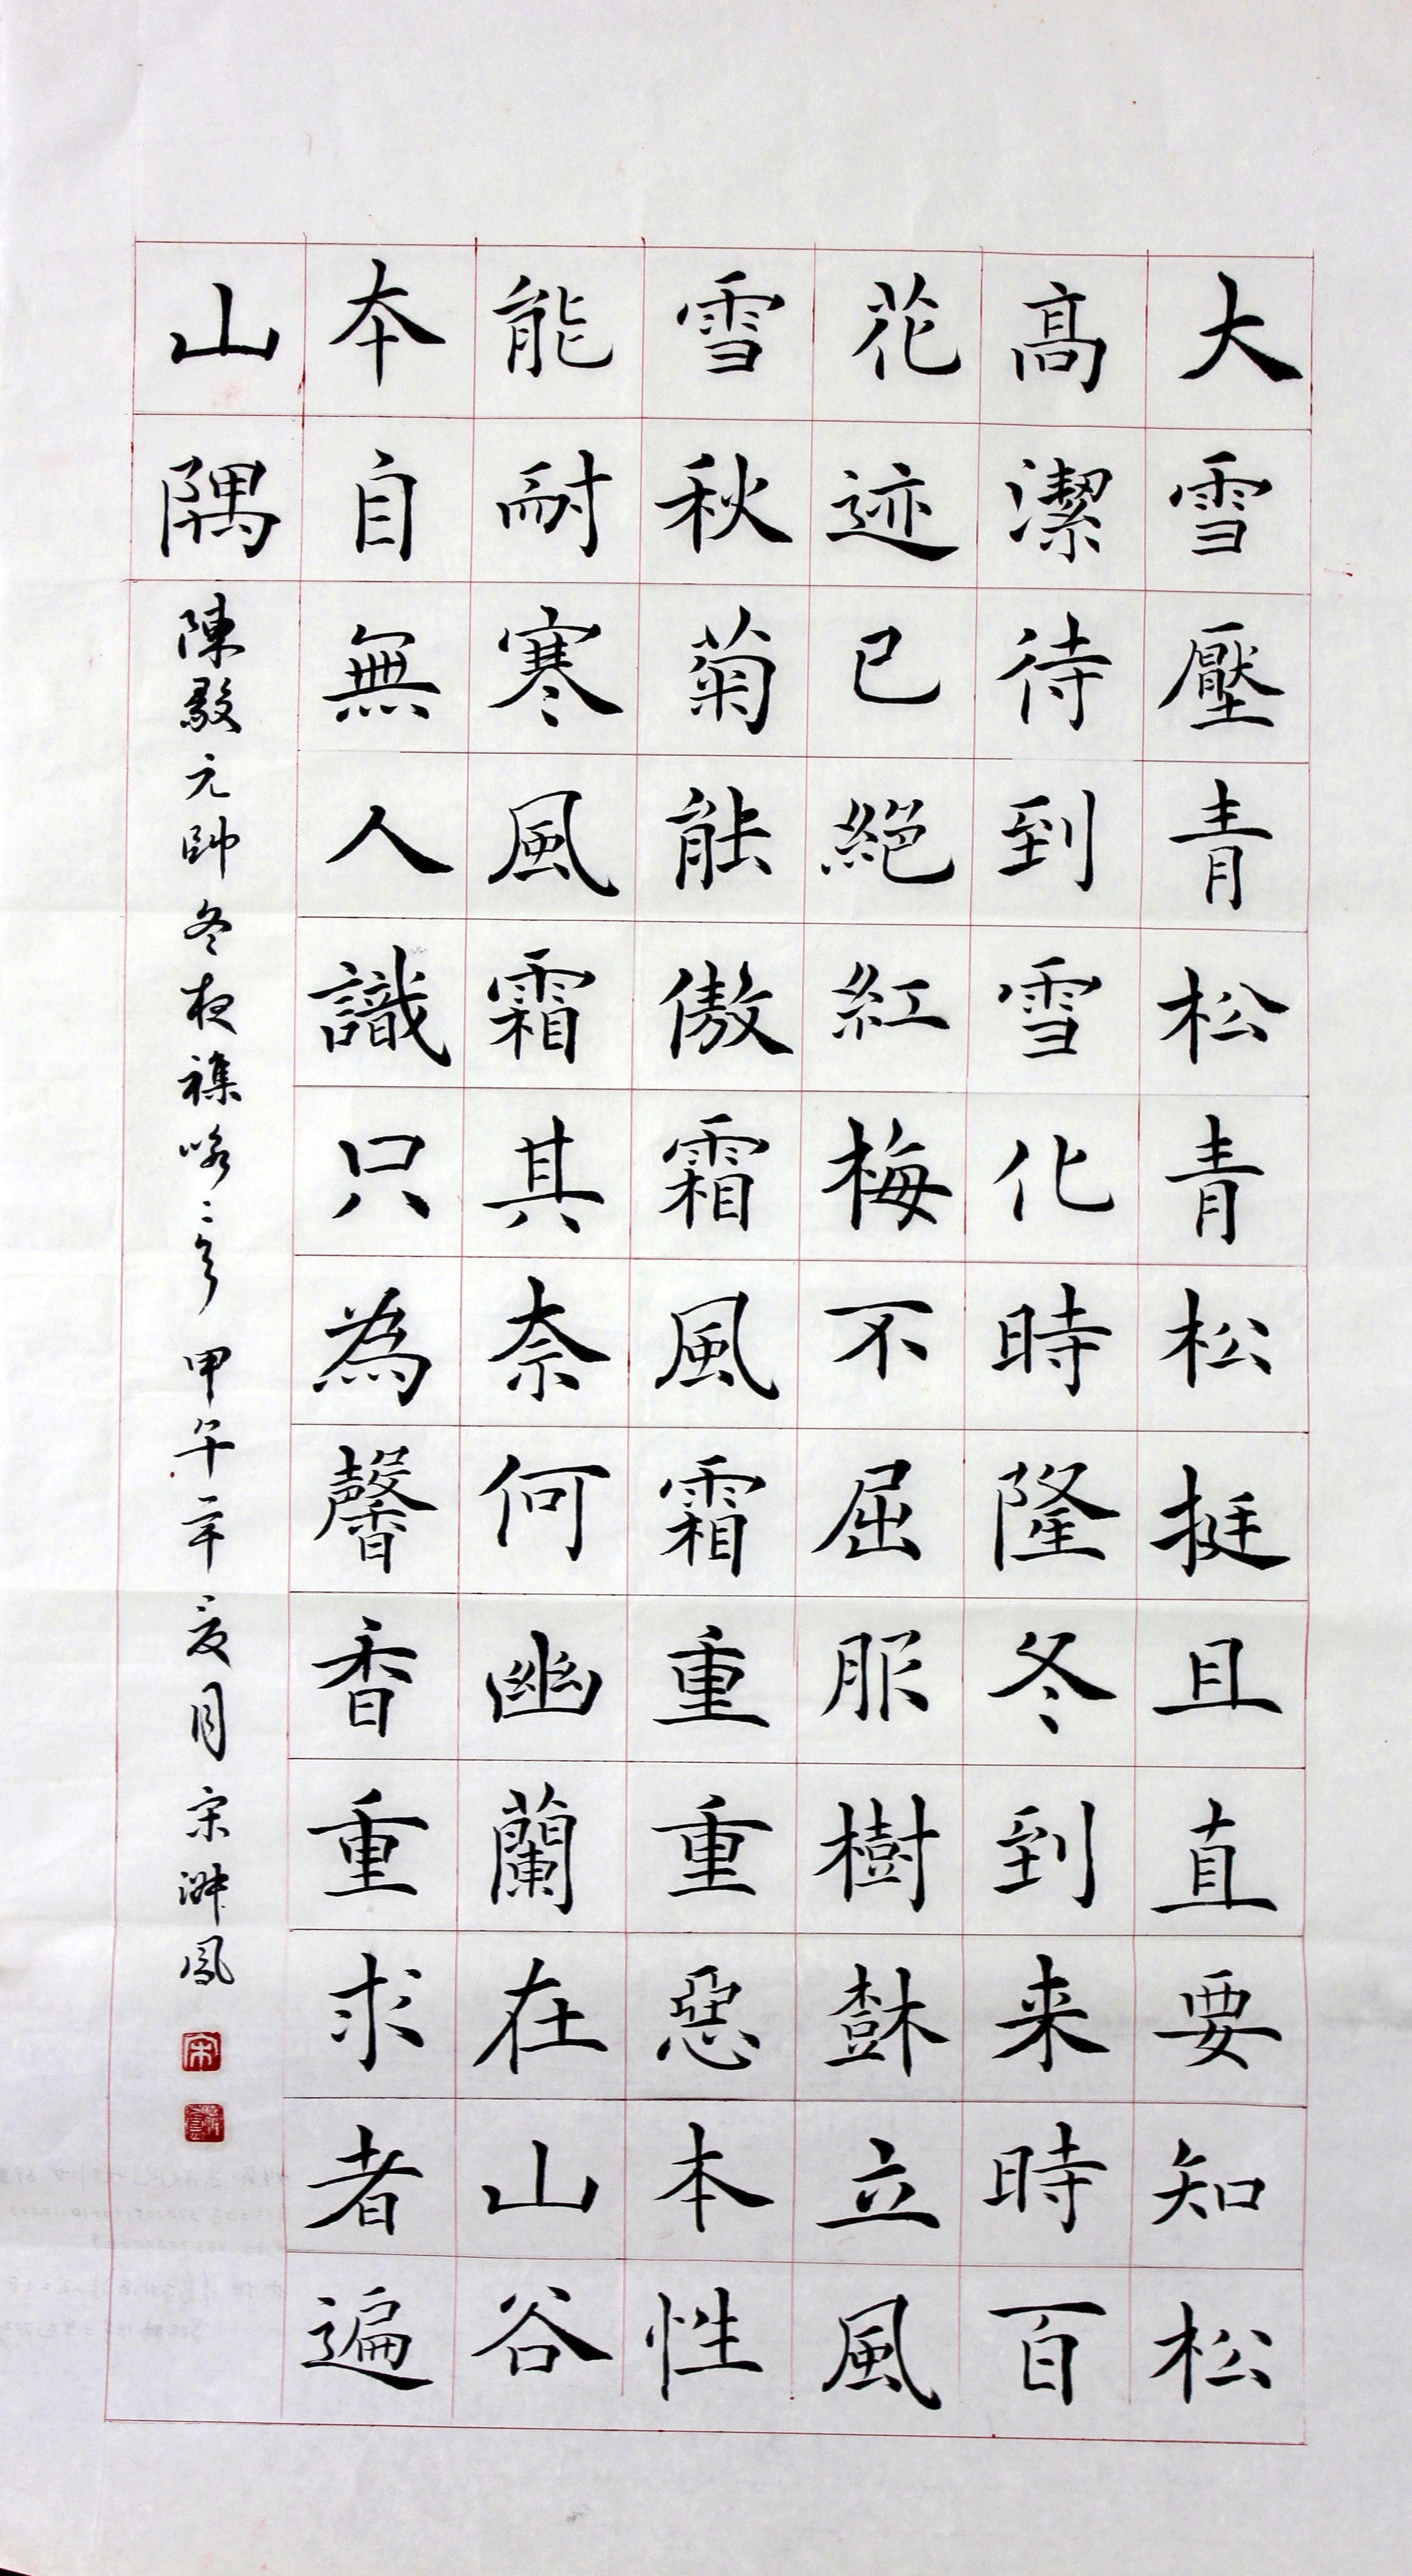 大雪壓青松青松挺且直要知松
高潔待到雪化時隆冬到来時百
花迹已絕紅梅不屈服樹樹立風
雪秋菊能傲霜風霜重重惡本性
能耐寒風霜其奈何幽蘭在山谷
本自無人識只為馨香重求者遍
山隅
陳毅元帥冬夜襍咏 甲午年夏月宋淋鳳